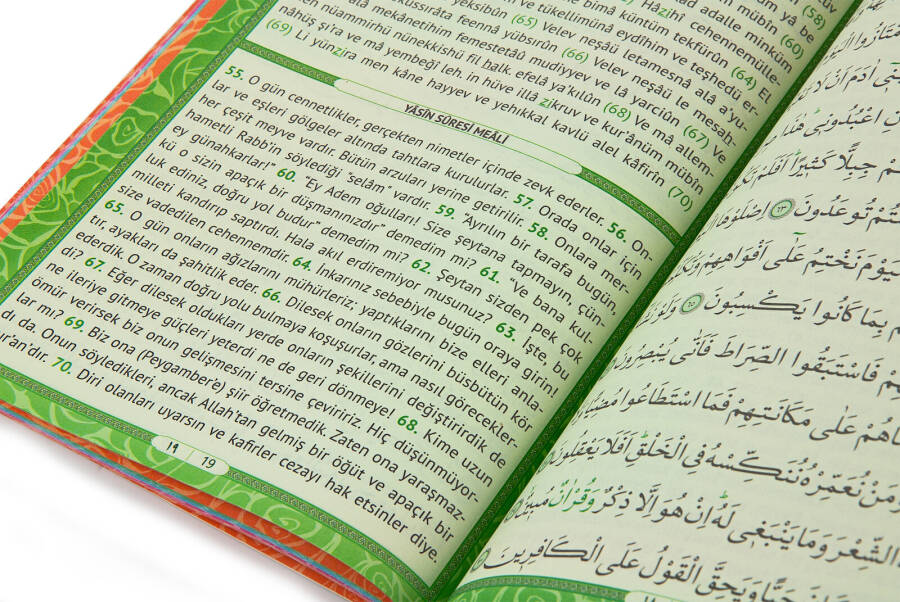 (58)
adalle minküm
mübîn
yâ be
bimâ küntüm
Hâzihî cehennemülle-
(60)
yeksibûn (65) Velev neşâü letamesnâ alâ a'yu-
ve tükellimünâ eydîhim ve teşhedü er
tekfürûn (64) El
feennâ yübsırûn (66) Velev neşâü le mesah-
alâ mekânetihim femestetâû mudiyyev ve lâ yarciûn (67) Ve
nüammirhü nünekkishü fil halk. efelâ ya'kılûn (68) Ve mâ allem-
nâhüş şı'ra ve mâ yembeğî leh. in hüve illâ zikruv ve kur'ânüm mübîn
(69) Li yünzira men kâne hayyev ve yehıkkal kavlü alel kâfirîn (70)
YÂSİN SÛRESİ MEÂLİ
55. O gün cennetlikler, gerçekten nimetler içinde zevk ederler. 56. On-
lar ve eşleri gölgeler altında tahtlara kurulurlar. 57. Orada onlar için
her çeşit meyve vardır. Bütün arzuları yerine getirilir. 58. Onlara mer-
hametli Rabb'in söylediği "selâm" vardır. 59. "Ayrılın bir tarafa bugün,
ey günahkarlar!" 60. "Ey Adem oğulları! Size şeytana tapmayın, çün-
kü O sizin apaçık bir düşmanınızdır" demedim mi? 61. "Ve bana kul-
luk ediniz, doğru yol budur" demedim mi? 62. Şeytan sizden pek çok
milleti kandırıp saptırdı. Hala akıl erdiremiyor musunuz? 63. İşte, bu
size vadedilen cehennemdir. 64. İnkarınız sebebiyle bugün oraya girin!
65. O gün onların ağızlarını mühürleriz; yaptıklarını bize elleri anla-
tır, ayakları da şahitlik eder. 66. Dilesek onların gözlerini büsbütün kör
ederdik. O zaman doğru yolu bulmaya koşuşurlar, ama nasıl görecekler-
di? 67. Eğer dilesek oldukları yerde onların şekillerini değiştirirdik de
ne ileriye gitmeye güçleri yeterdi ne de geri dönmeye! 68. Kime uzun
ömür verirsek biz onun gelişmesini tersine çeviririz. Hiç düşünmüyor-
lar mı? 69. Biz ona (Peygamber'e) şiir öğretmedik. Zaten ona yaraşmaz-
dı da. Onun söyledikleri, ancak Allah'tan gelmiş bir öğüt ve apaçık bir
ur'an'dır. 70. Diri olanları uyarsın ve kafirler cezayı hak etsinler diye
١٩ 19
جِبِلًّا كَثِيرًا اَفَلَمْ
تُوعَدُونَ ﴿٦٣﴾ اِصْلَوْهَا
نَخْتِمُ عَلٰٓى اَفْوَاهِهِمْ
بِمَا كَانُوا يَكْسِبُونَ ﴿٦٥﴾
فَاسْتَبَقُوا الصِّرَاطَ فَاَنّٰى يُبْصِرُونَ
عَلٰى مَكَانَتِهِمْ فَمَا اسْتَطَاعُوا
نُعَمِّرْهُ نُنَكِّسْهُ فِي الْخَلْقِ اَفَلَا يَعْقِلُونَ
الشِّعْرَ وَمَا يَنْبَغٖي لَهُ اِنْ هُوَ اِلَّا ذِكْرٌ وَقُرْاٰنٌ مُبٖينٌ
حَيًّا وَيَحِقَّ الْقَوْلُ عَلَى الْكَافِرٖينَ